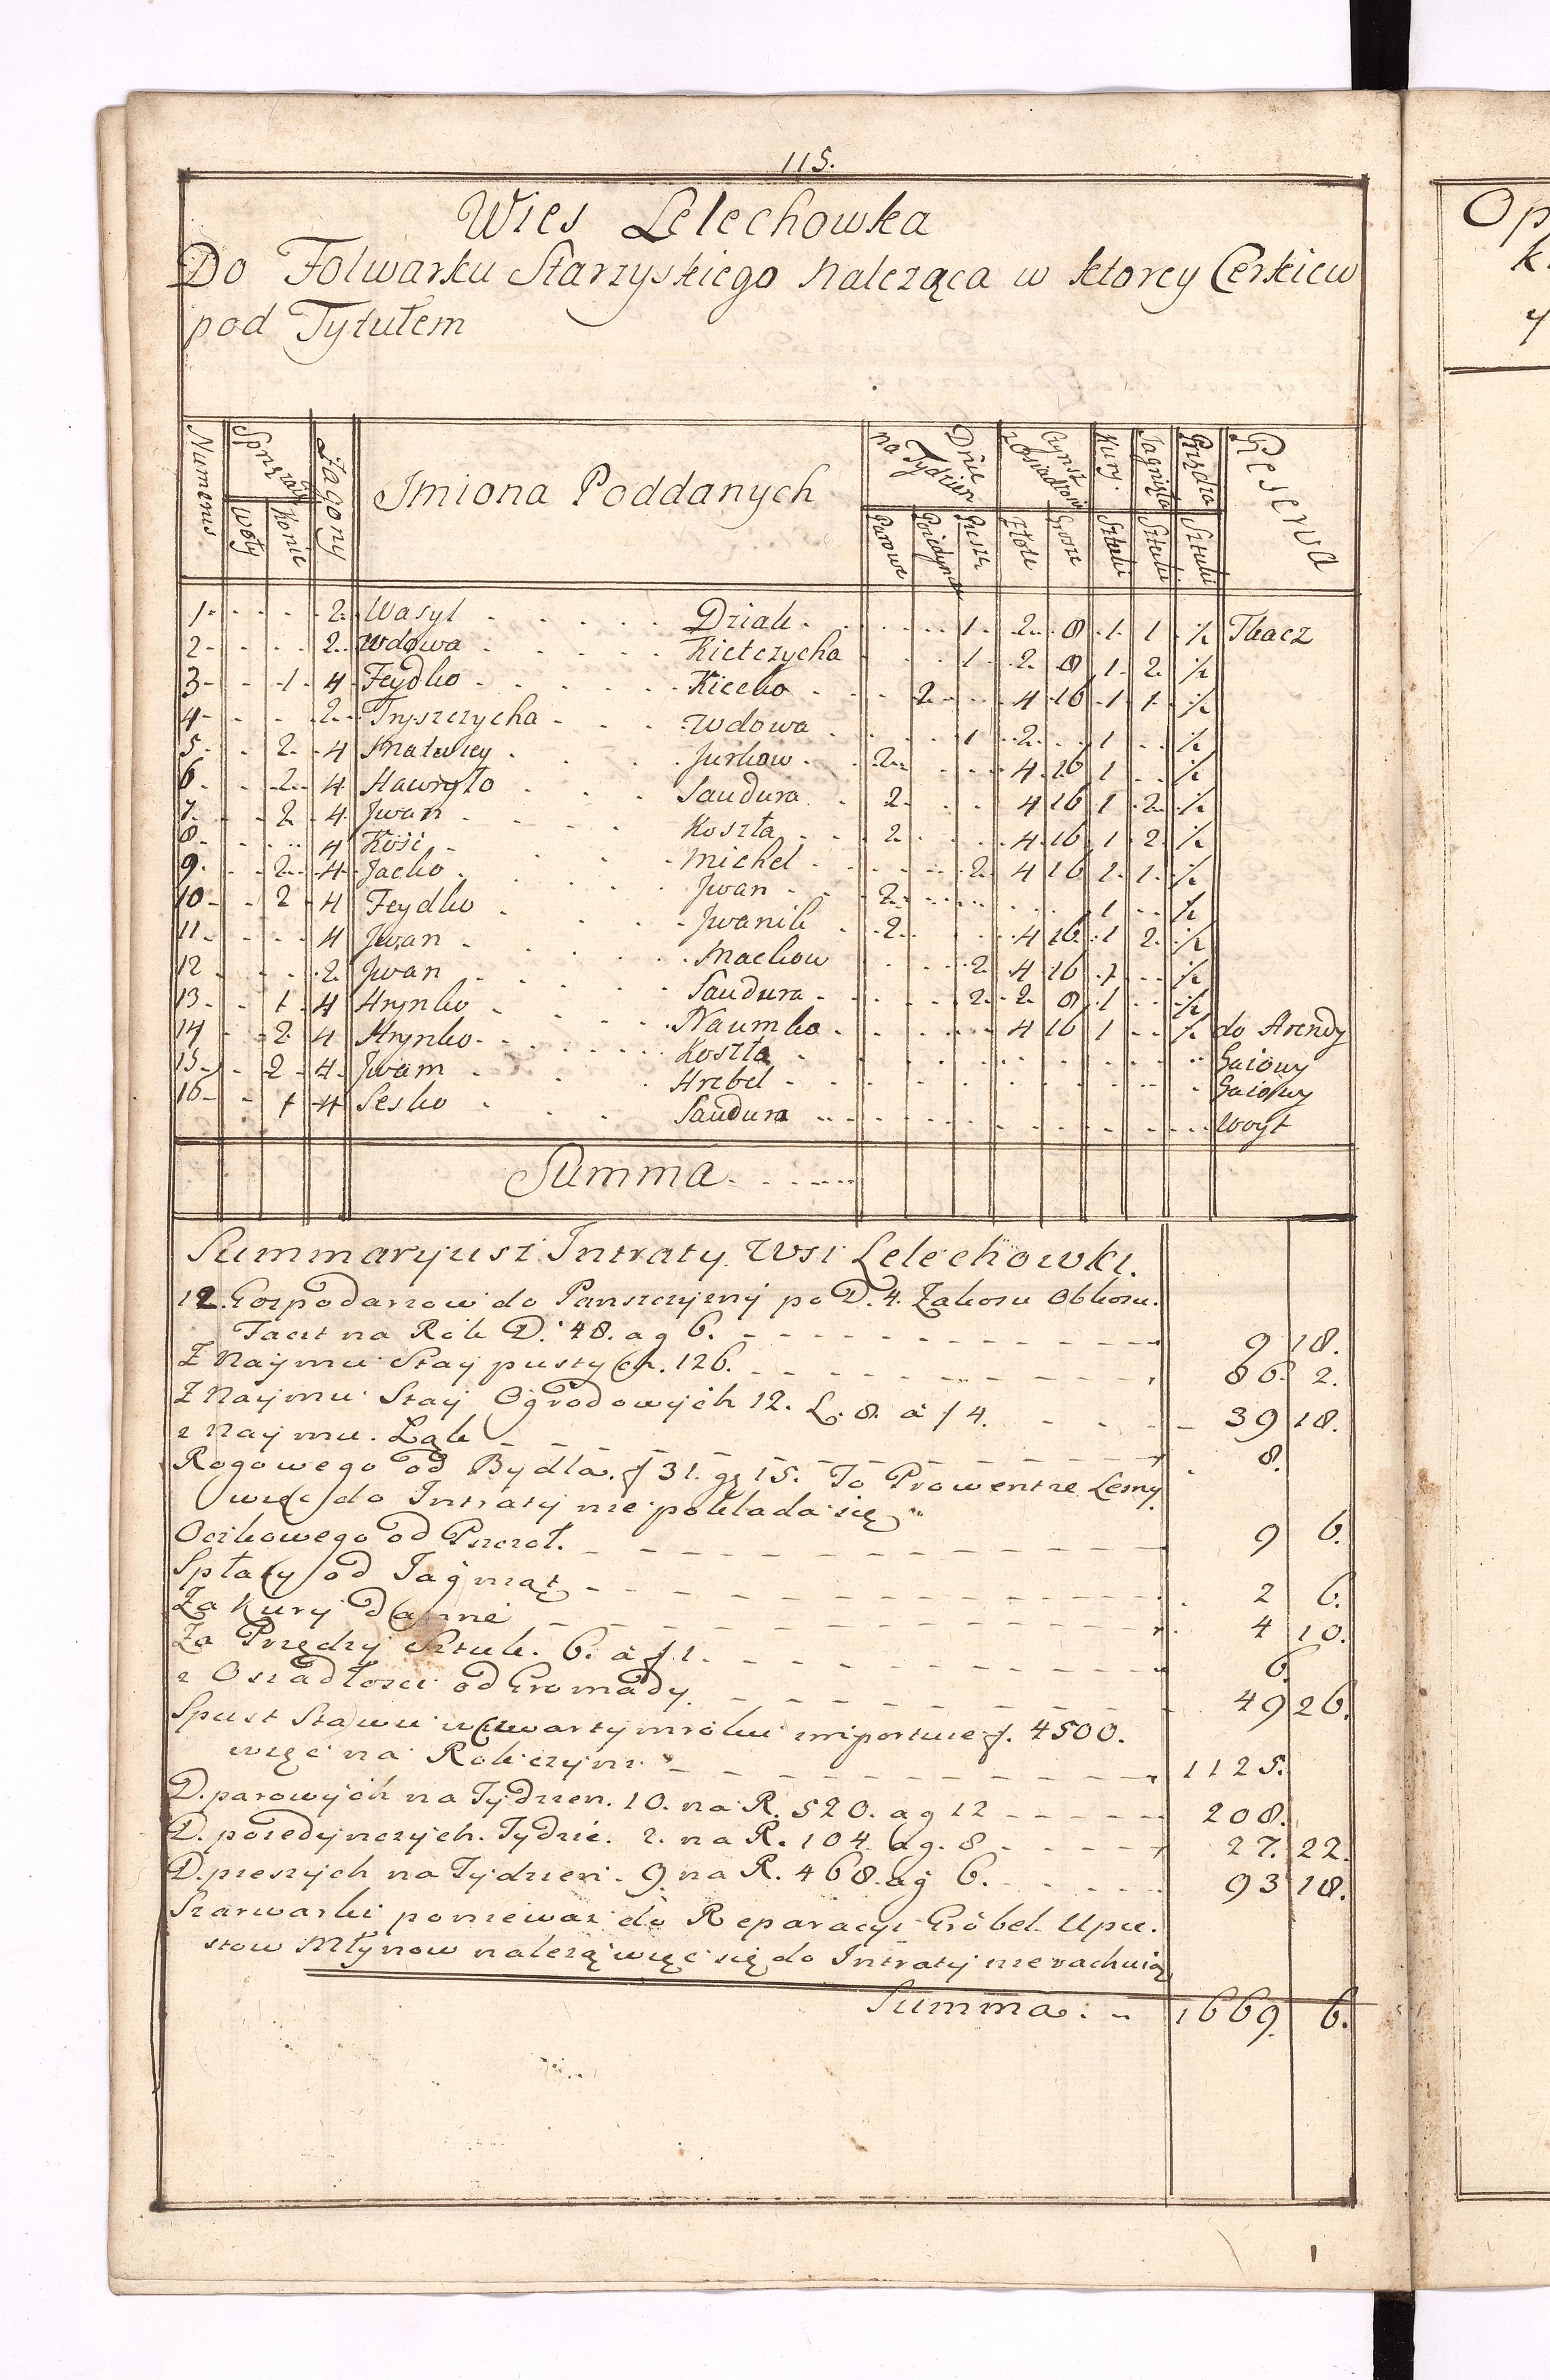 115.
Wies Lelechowka
Do Folwarku Starzyskiego Nalcząca w ktorey Cerkiew
pod Tytułem
Numerus Woły Konie Zagony Imiona Poddanych Dnie na Tydzien Parowe Poiedyncze Piesze Czynsz z Osiadłosci Złote Grosze Kury Sztuki Jagnięta Sztuki Przędza Sztuki Reserwa
1 2 Wasyl Dziak 1 2 8 1 1 ½ Tkacz
2 2 Wdowa Kietczycha 1 2 8 1 2 ½
3 1 4 Feydko Kiccko 2 4 16 1 1 ½
4 2 Tryszczycha Wdowa 1 2 1 ½
5 2 4 Matwiey Jurkow 2 4 16 1 ½
6 2 4 Hawryło Saudura 2 4 16 1 2 ½
7 2 4 Jwan Koszła 2 4 16 1 2 ½
8 4 Kośc Michel 2 4 16 1 1 ½
9 2 4 Jacko Jwan 2 1 ½
10 2 4 Feydko Jwanik 2 4 16 1 2 ½
11 4 Jwan Mackow 2 4 16 1 ½
12 2 Jwan Saudura 2 2 8 1 ½
13 1 4 Hrynko Naumko 4 16 1 ½ do Arendy
14 2 4 Hrynko Koszła Gaiowy
15 2 4 Jwam Hrebel Gaiowy
16 1 4 Sesko Saudura Woyt
Summa
Summaryusz Intraty Wsi Lelechowki.
12. Gospodarzow do Panszczyzny po D. 4. Zakosu Obkosu.
Facit na Rok D. 48. a g 6. 9 18.
Z Naymu Stay pustych. 126. 86 2.
Z Naymu Stay Ogrodowych 12. L. 8. à f 4. 39 18.
z Naymu. Łąk 8.
Rogowego od Bydła. f 31. gs 15. To Prowentze Lemy
więc do Intraty nie pokłada się
Oczkowego od Pszczoł. 9 6.
Spłacy od Jagniąt 2 6.
Za Kury Danne 4 10.
Za Przędzy Sztuk. 6. à f 1. 6
z Osiadłosci od Gromady. 49 26.
Spust Stawu w czwartym roku importuie f. 4500.
więc na Rok czyni 1125.
D. parowych na Tydzien. 10. na R. 520. a g 12 208.
D. poiedynczych. Tydzie. 2. na R. 104. ag. 8 27. 22.
D. pieszych na Tydzien. 9 na R. 468. ag 6. 93 18.
Szarwarki poniewaz do Reparacyi Gróbel Upu.
stow Młynow nalezą więc się do Intraty nie rachuią
Summa 1669 6.
Op
k
y